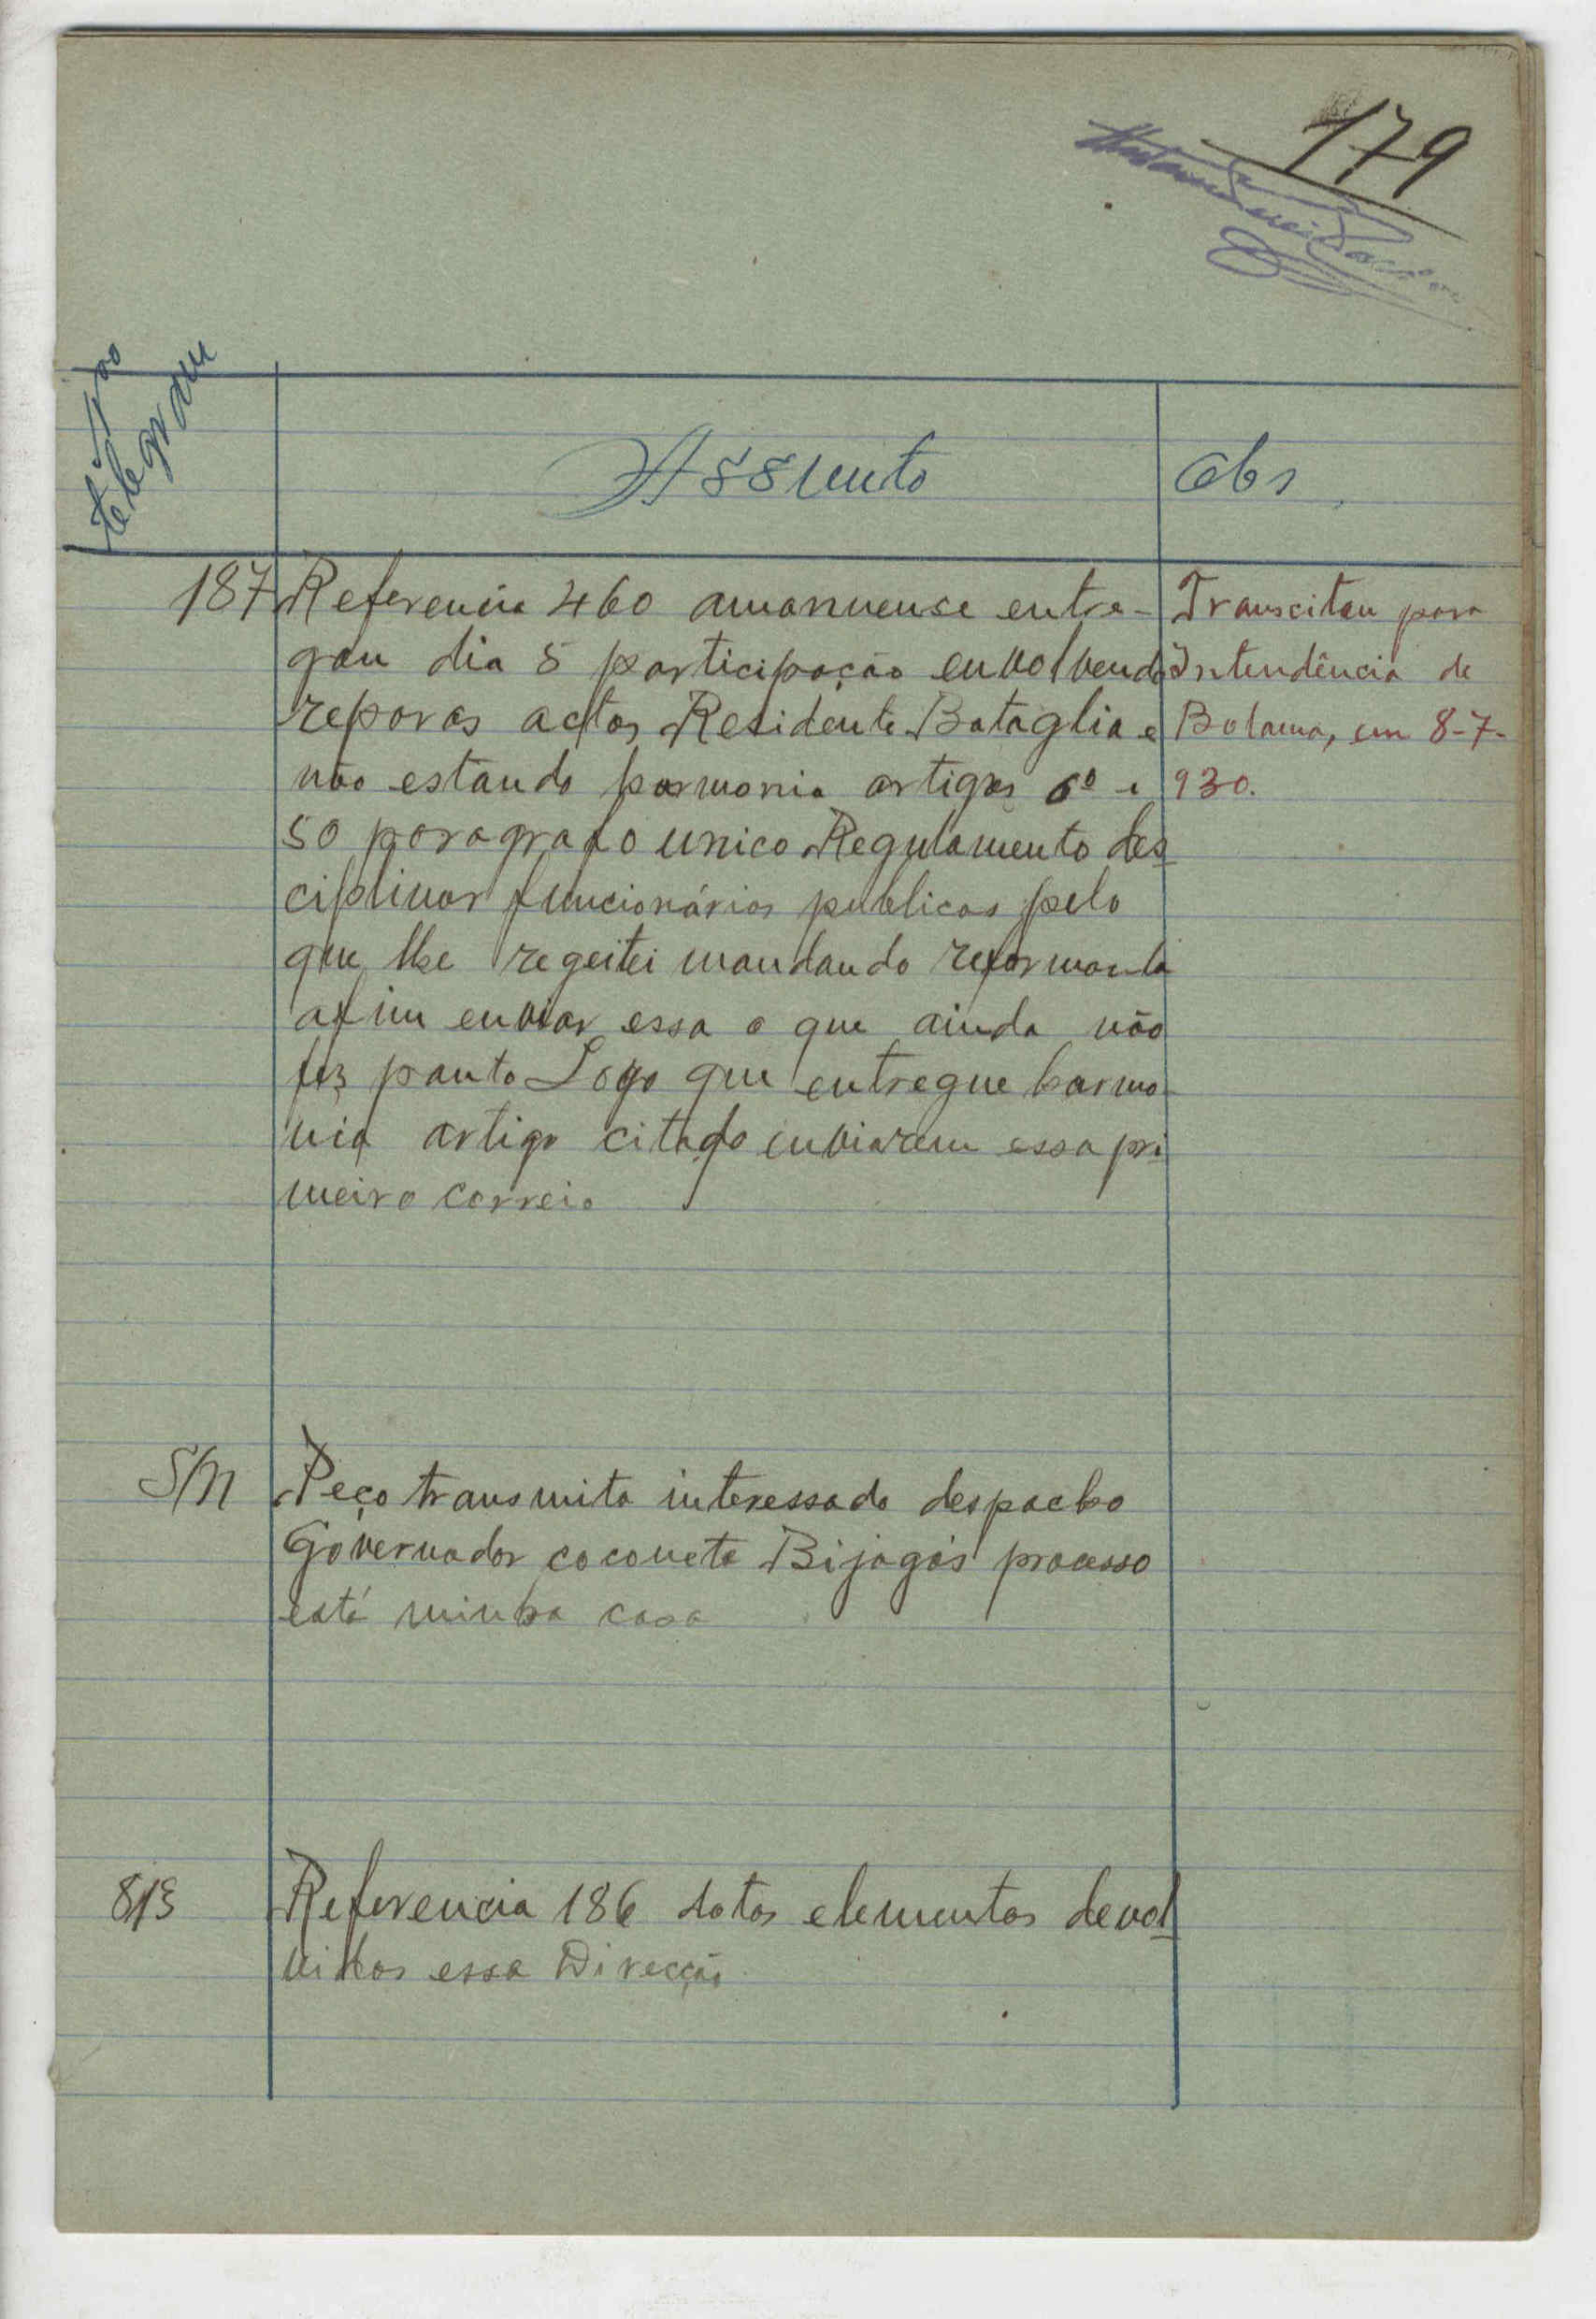 179
telegram
Assunto
Obs
187 Referencia 460 amanuense entre- Transcitou para
gou dia 5 participação envolvendo Intendência de
reparos actos Residente Bataglia e Bolama, em 8-7-
não estando harmonia artigos 6º e 930.
50 paragrafo unico Regulamento des
ciplinar funcionários publicos pelo
que lhe regeitei mandando reformarla
afim enviar essa o que ainda não
fez ponto Logo que entregue harmo-
nia artigo citado enviarem essa pri
meiro correio
S/N Peço transmita interessado despacho
Governador coconote Bijagós processo
está minha casa
813 Referencia 186 datos elementos devol
vidos essa Direcção